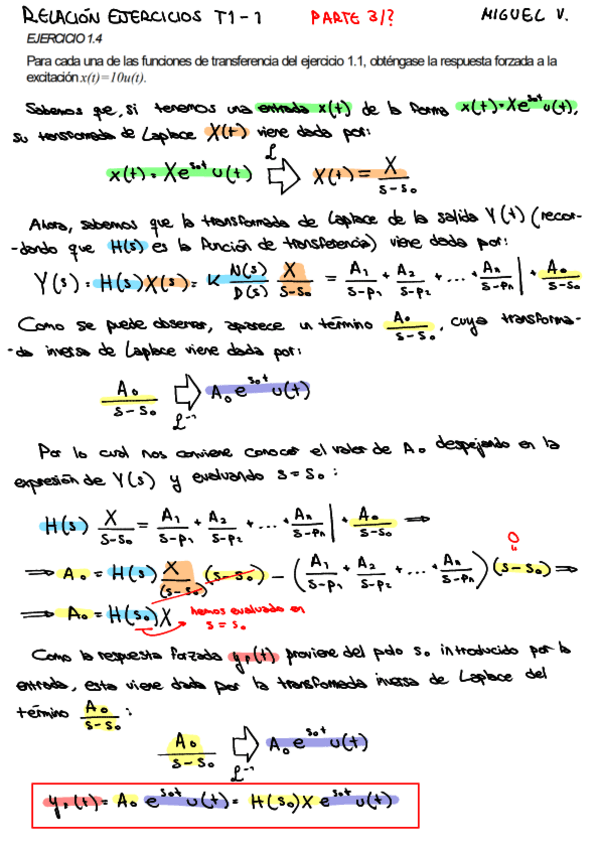 RELACIÓN EJERCICIOS T1-1 PARTE 3/? MIGUEL V.
EJERCICIO 1.4
Para cada una de las funciones de transferencia del ejercicio 1.1, obténgase la respuesta forzada a la
excitación x(t)=10u(t).
Sabemos que, si tenemos una entrada x(t) de la forma x(t)=Xe^{s₀t}u(t),
su transformada de Laplace X(t) viene dada por:
x(t) = Xe^{s₀t}u(t) ℒ ⇒ X(t) = X/(s-s₀)
Ahora, sabemos que la transformada de Laplace de la salida Y(t) (recor-
-dando que H(s) es la función de transferencia) viene dada por:
Y(s) = H(s)X(s) = K N(s)/D(s) X/(s-s₀) = A₁/(s-p₁) + A₂/(s-p₂) + ... + Aₙ/(s-pₙ) | + A₀/(s-s₀)
Como se puede observar, aparece un término A₀/(s-s₀), cuya transforma-
-da inversa de Laplace viene dada por:
A₀/(s-s₀) ⇒ ℒ⁻¹ A₀e^{s₀t}u(t)
Por lo cual nos conviene conocer el valor de A₀ despejando en la
expresión de Y(s) y evaluando s=s₀:
H(s) X/(s-s₀) = A₁/(s-p₁) + A₂/(s-p₂) + ... + Aₙ/(s-pₙ) | + A₀/(s-s₀) ⇒
⇒ A₀ = H(s) X/(s-s₀) (s-s₀) - (A₁/(s-p₁) + A₂/(s-p₂) + ... + Aₙ/(s-pₙ)) (s-s₀) ⇒ 0
⇒ A₀ = H(s₀)X hemos evaluado en
s=s₀
Como la respuesta forzada y_f(t) proviene del polo s₀ introducido por la
entrada, esta viene dada por la transformada inversa de Laplace del
término A₀/(s-s₀):
A₀/(s-s₀) ⇒ ℒ⁻¹ A₀e^{s₀t}u(t)
y_f(t) = A₀ e^{s₀t}u(t) = H(s₀)X e^{s₀t}u(t)